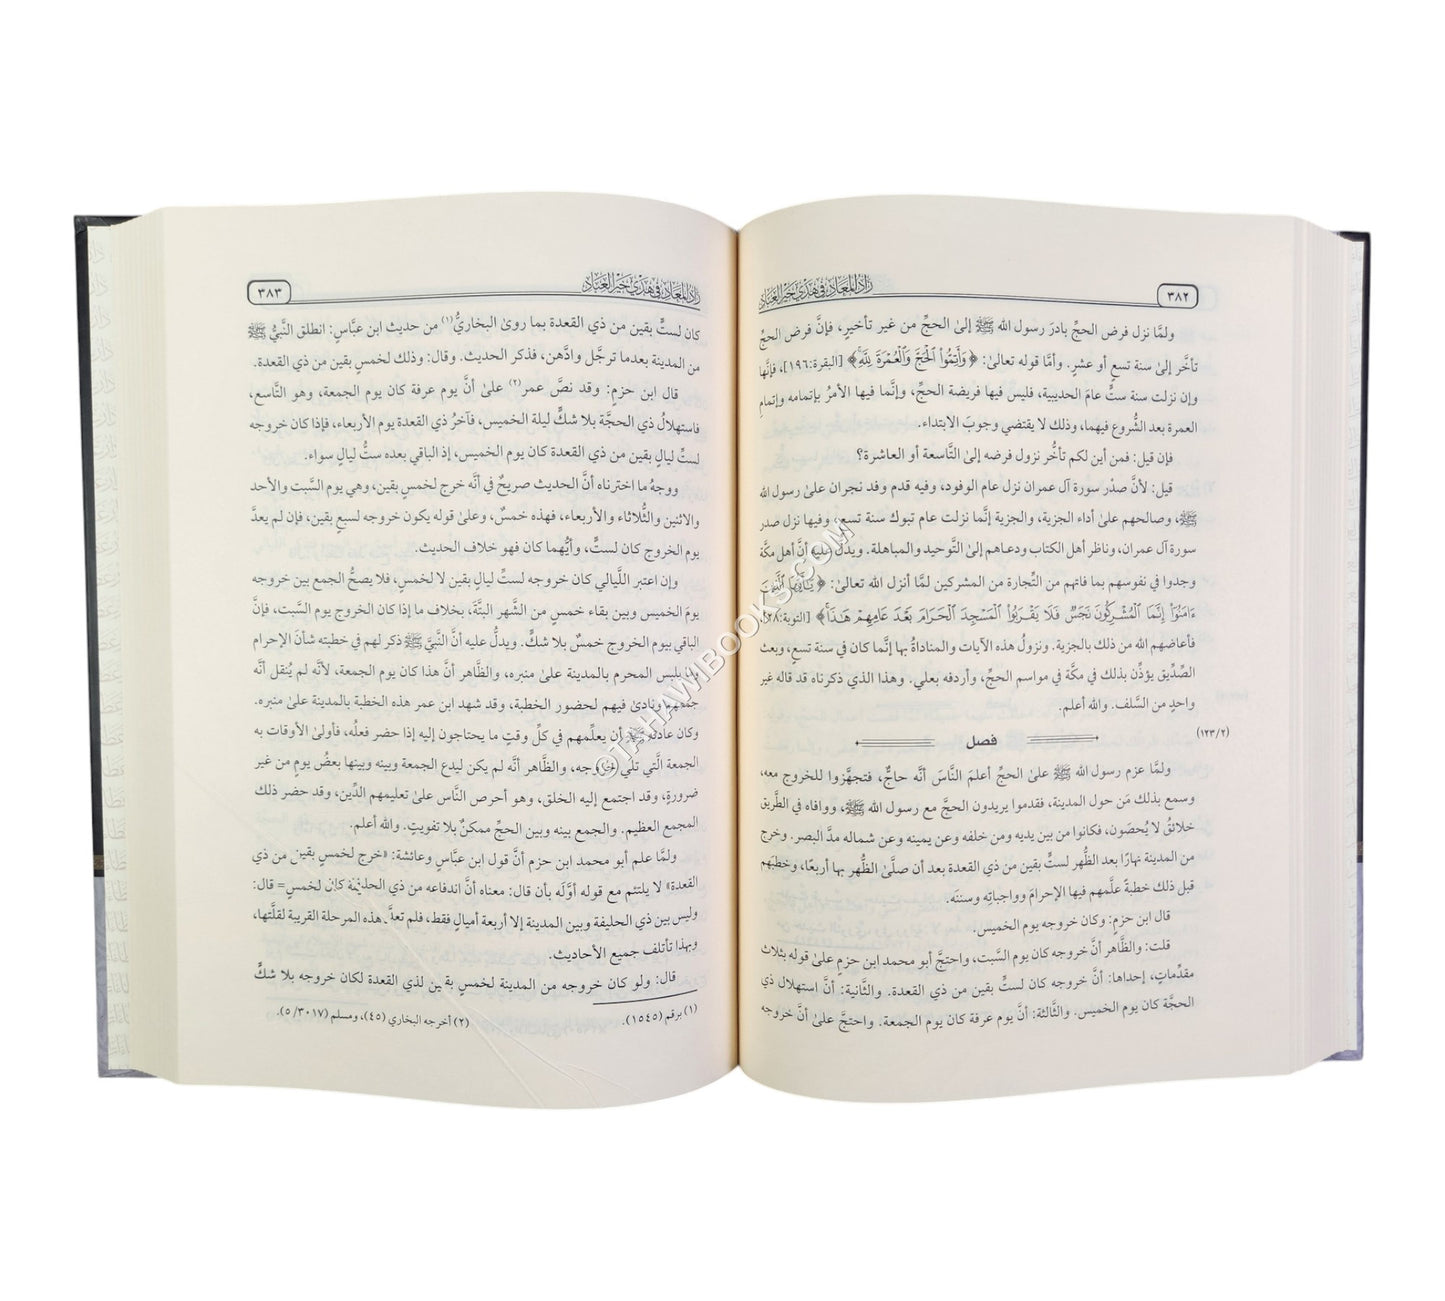 ٣٨٢
زاد المعاد في هدي خير العباد
ولمَّا نزل فرض الحجِّ بادرَ رسول الله ﷺ إلىٰ الحجِّ من غير تأخيرٍ، فإنَّ فرض الحجِّ
تأخَّر إلىٰ سنة تسعٍ أو عشرٍ. وأمَّا قوله تعالىٰ: ﴿وَأَتِمُّواْ ٱلْحَجَّ وَٱلْعُمْرَةَ لِلَّهِ﴾ [البقرة:١٩٦]، فإنَّها
وإن نزلت سنة ستٍّ عامَ الحديبية، فليس فيها فريضة الحجِّ، وإنَّما فيها الأمرُ بإتمامه وإتمامِ
العمرة بعد الشُّروع فيهما، وذلك لا يقتضي وجوبَ الابتداء.
فإن قيل: فمن أين لكم تأخُّر نزول فرضه إلىٰ التَّاسعة أو العاشرة؟
قيل: لأنَّ صدْر سورة آل عمران نزل عام الوفود، وفيه قدم وفد نجران علىٰ رسول الله
ﷺ، وصالحهم علىٰ أداء الجزية، والجزية إنَّما نزلت عام تبوك سنة تسعٍ، وفيها نزل صدر
سورة آل عمران، وناظر أهل الكتاب ودعاهم إلىٰ التَّوحيد والمباهلة. ويدلُّ عليه أنَّ أهل مكَّة
وجدوا في نفوسهم بما فاتهم من التِّجارة من المشركين لمَّا أنزل الله تعالىٰ: ﴿يَٰٓأَيُّهَا ٱلَّذِينَ
ءَامَنُوٓاْ إِنَّمَا ٱلْمُشْرِكُونَ نَجَسٌ فَلَا يَقْرَبُواْ ٱلْمَسْجِدَ ٱلْحَرَامَ بَعْدَ عَامِهِمْ هَٰذَا﴾ [التوبة:٢٨]،
فأعاضهم الله من ذلك بالجزية. ونزولُ هذه الآيات والمناداةُ بها إنَّما كان في سنة تسعٍ، وبعث
الصِّدِّيق يؤذِّن بذلك في مكَّة في مواسم الحجِّ، وأردفه بعلي. وهذا الذي ذكرناه قد قاله غير
واحدٍ من السَّلف. والله أعلم.
فصل
(١٢٣/٢)
ولمَّا عزم رسول الله ﷺ علىٰ الحجِّ أعلمَ النَّاسَ أنَّه حاجٌّ، فتجهَّزوا للخروج معه،
وسمع بذلك مَن حول المدينة، فقدموا يريدون الحجَّ مع رسول الله ﷺ، ووافاه في الطَّريق
خلائقُ لا يُحصَون، فكانوا من بين يديه ومن خلفه وعن يمينه وعن شماله مدَّ البصر. وخرج
من المدينة نهارًا بعد الظُّهر لستٍّ بقين من ذي القعدة بعد أن صلَّىٰ الظُّهر بها أربعًا، وخطبَهم
قبل ذلك خطبةً علَّمهم فيها الإحرامَ وواجباتِه وسننَه.
قال ابن حزمٍ: وكان خروجه يوم الخميس.
قلت: والظَّاهر أنَّ خروجه كان يوم السَّبت، واحتجَّ أبو محمد ابن حزمٍ علىٰ قوله بثلاث
مقدِّماتٍ، إحداها: أنَّ خروجه كان لستٍّ بقين من ذي القعدة. والثَّانية: أنَّ استهلال ذي
الحجَّة كان يوم الخميس. والثَّالثة: أنَّ يوم عرفة كان يوم الجمعة. واحتجَّ علىٰ أنَّ خروجه
زاد المعاد في هدي خير العباد
٣٨٣
كان لستٍّ بقين من ذي القعدة بما روىٰ البخاريُّ(١) من حديث ابن عبَّاسٍ: انطلق النَّبيُّ ﷺ
من المدينة بعدما ترجَّل وادَّهن، فذكر الحديث. وقال: وذلك لخمسٍ بقين من ذي القعدة.
قال ابن حزمٍ: وقد نصَّ عمر(٢) علىٰ أنَّ يوم عرفة كان يوم الجمعة، وهو التَّاسع،
فاستهلالُ ذي الحجَّة بلا شكٍّ ليلة الخميس، فآخرُ ذي القعدة يوم الأربعاء، فإذا كان خروجه
لستِّ ليالٍ بقين من ذي القعدة كان يوم الخميس، إذ الباقي بعده ستُّ ليالٍ سواء.
ووجهُ ما اخترناه أنَّ الحديث صريحٌ في أنَّه خرج لخمسٍ بقين، وهي يوم السَّبت والأحد
والاثنين والثُّلاثاء والأربعاء، فهذه خمسٌ، وعلىٰ قوله يكون خروجه لسبعٍ بقين، فإن لم يعدَّ
يوم الخروج كان لستٍّ، وأيُّهما كان فهو خلاف الحديث.
وإن اعتبر اللَّيالي كان خروجه لستِّ ليالٍ بقين لا لخمسٍ، فلا يصحُّ الجمع بين خروجه
يومَ الخميس وبين بقاء خمسٍ من الشَّهر البتَّةَ، بخلاف ما إذا كان الخروج يوم السَّبت، فإنَّ
الباقي بيوم الخروج خمسٌ بلا شكٍّ. ويدلُّ عليه أنَّ النَّبيَّ ﷺ ذكر لهم في خطبته شأنَ الإحرام
وما يلبس المحرم بالمدينة علىٰ منبره، والظَّاهر أنَّ هذا كان يوم الجمعة، لأنَّه لم يُنقل أنَّه
جمعهم ونادىٰ فيهم لحضور الخطبة، وقد شهد ابن عمر هذه الخطبة بالمدينة علىٰ منبره.
وكان عادته ﷺ أن يعلِّمهم في كلِّ وقتٍ ما يحتاجون إليه إذا حضر فعلُه، فأولىٰ الأوقات به
الجمعة الَّتي تلي خروجه، والظَّاهر أنَّه لم يكن ليدع الجمعة وبينه وبينها بعضُ يومٍ من غير
ضرورةٍ، وقد اجتمع إليه الخلق، وهو أحرص النَّاس علىٰ تعليمهم الدِّين، وقد حضر ذلك
المجمع العظيم. والجمع بينه وبين الحجِّ ممكنٌ بلا تفويتٍ. والله أعلم.
ولمَّا علم أبو محمد ابن حزم أنَّ قول ابن عبَّاسٍ وعائشة: «خرج لخمسٍ بقين من ذي
القعدة» لا يلتئم مع قوله أوَّلَه بأن قال: معناه أنَّ اندفاعه من ذي الحليفة كان لخمسٍ= قال:
وليس بين ذي الحليفة وبين المدينة إلا أربعة أميالٍ فقط، فلم تعدَّ هذه المرحلة القريبة لقلَّتها،
وبهذا تأتلف جميع الأحاديث.
قال: ولو كان خروجه من المدينة لخمسٍ بقين لذي القعدة لكان خروجه بلا شكٍّ
(١) برقم (١٥٤٥).
(٢) أخرجه البخاري (٤٥)، ومسلم (٥/٣٠١٧).
©TAHAWIBOOKS.COM